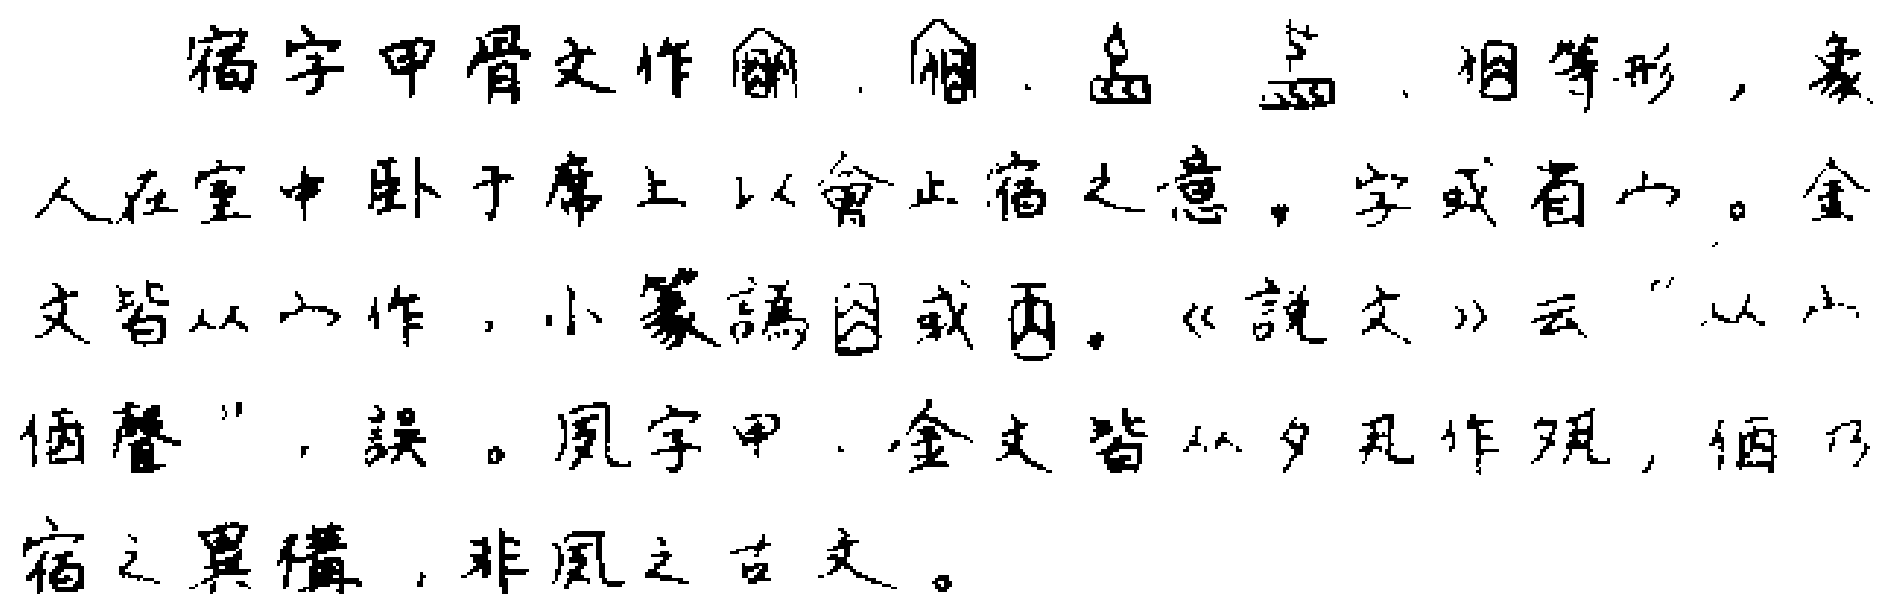 宿字甲骨文作、、、、等形，象
人在室中卧于席上以會止宿之意。字或省宀。金
文皆从宀作，小篆譌或㐁。《說文》云“从宀
㐁聲”，誤。夙字甲、金文皆从夕丮作𡖊，㐁乃
宿之異構，非夙之古文。